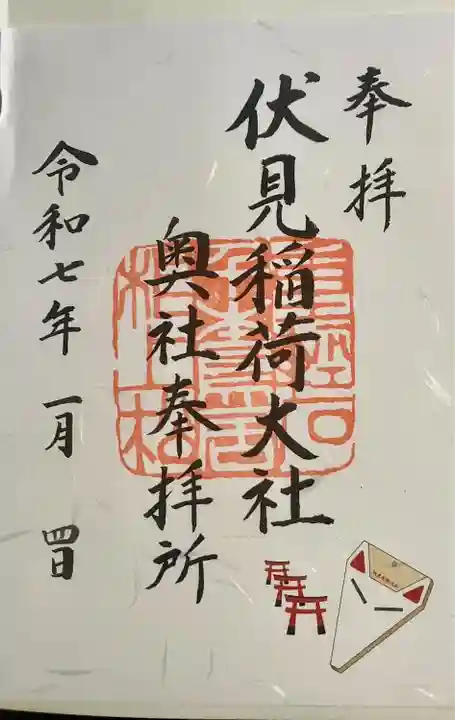 奉拝
伏見稲荷大社
奥社奉拝所
令和七年 一月 四日